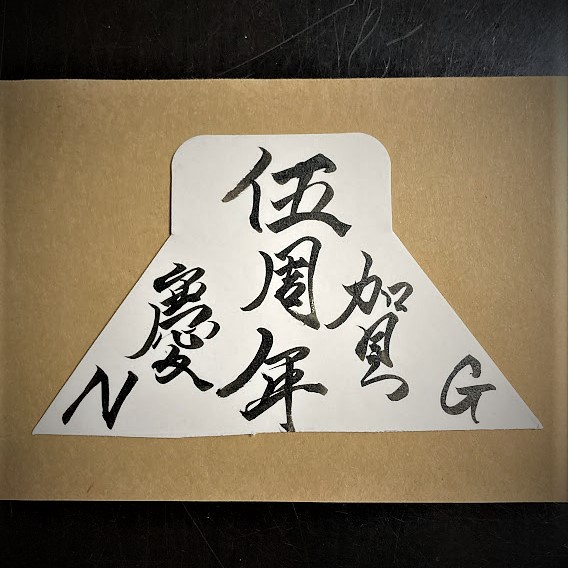 伍周年
慶
賀
N
G